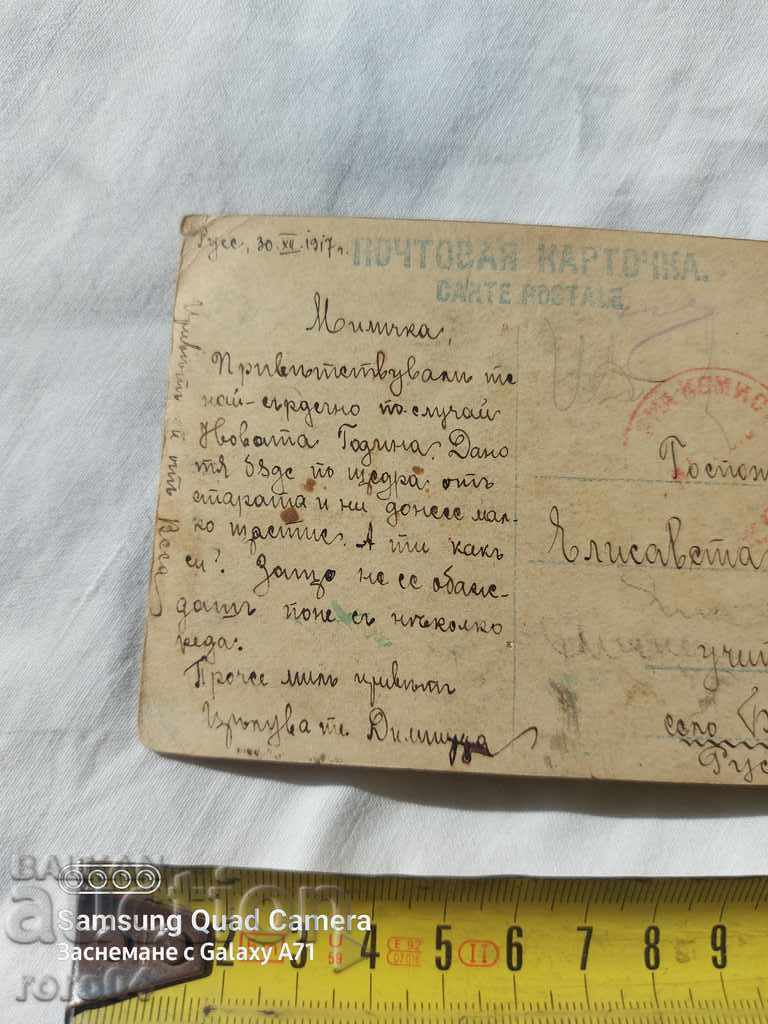 Русе, 30 XII 1917 г.
ПОЧТОВАЯ КАРТОЧКА.
CARTE POSTALE.
Миличка,
Привѣтствувамъ те
най-сърдечно по случай
Новата Година. Дано
тя бѫде по щедра отъ
старата и ни донесе мал-
ко щастие. А ти какъ
си? Защо не се обаж-
дашъ поне съ нѣколко
реда.
Прочее милъ привѣтъ
Цѣлува те Димитуца
Привѣтъ и отъ
НА КОМИС
Госпож
Елисавета
учит
село
Рус
BALKAN
auction
Samsung Quad Camera
Заснемане с Galaxy A71
2 3 4 5 6 7 8 9
E 92
II
59